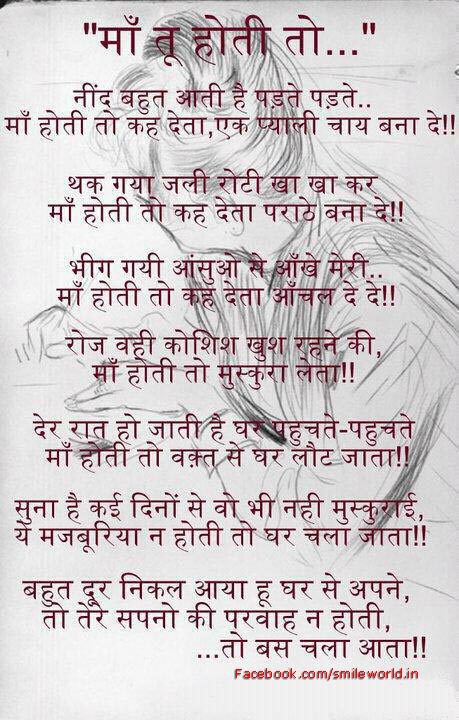 "माँ तू होती तो..."
नींद बहुत आती है पड़ते पड़ते..
माँ होती तो कह देता,एक प्याली चाय बना दे!!
थक गया जली रोटी खा खा कर
माँ होती तो कह देता पराठे बना दे!!
भीग गयी आंसुओ से आँखे मेरी..
माँ होती तो कह देता आँचल दे दे!!
रोज वही कोशिश खुश रहने की,
माँ होती तो मुस्कुरा लेता!!
देर रात हो जाती है घर पहुचते-पहुचते
माँ होती तो वक़्त से घर लौट जाता!!
सुना है कई दिनों से वो भी नही मुस्कुराई,
ये मजबूरिया न होती तो घर चला जाता!!
बहुत दूर निकल आया हू घर से अपने,
तो तेरे सपनो की परवाह न होती,
...तो बस चला आता!!
Facebook.com/smileworld.in